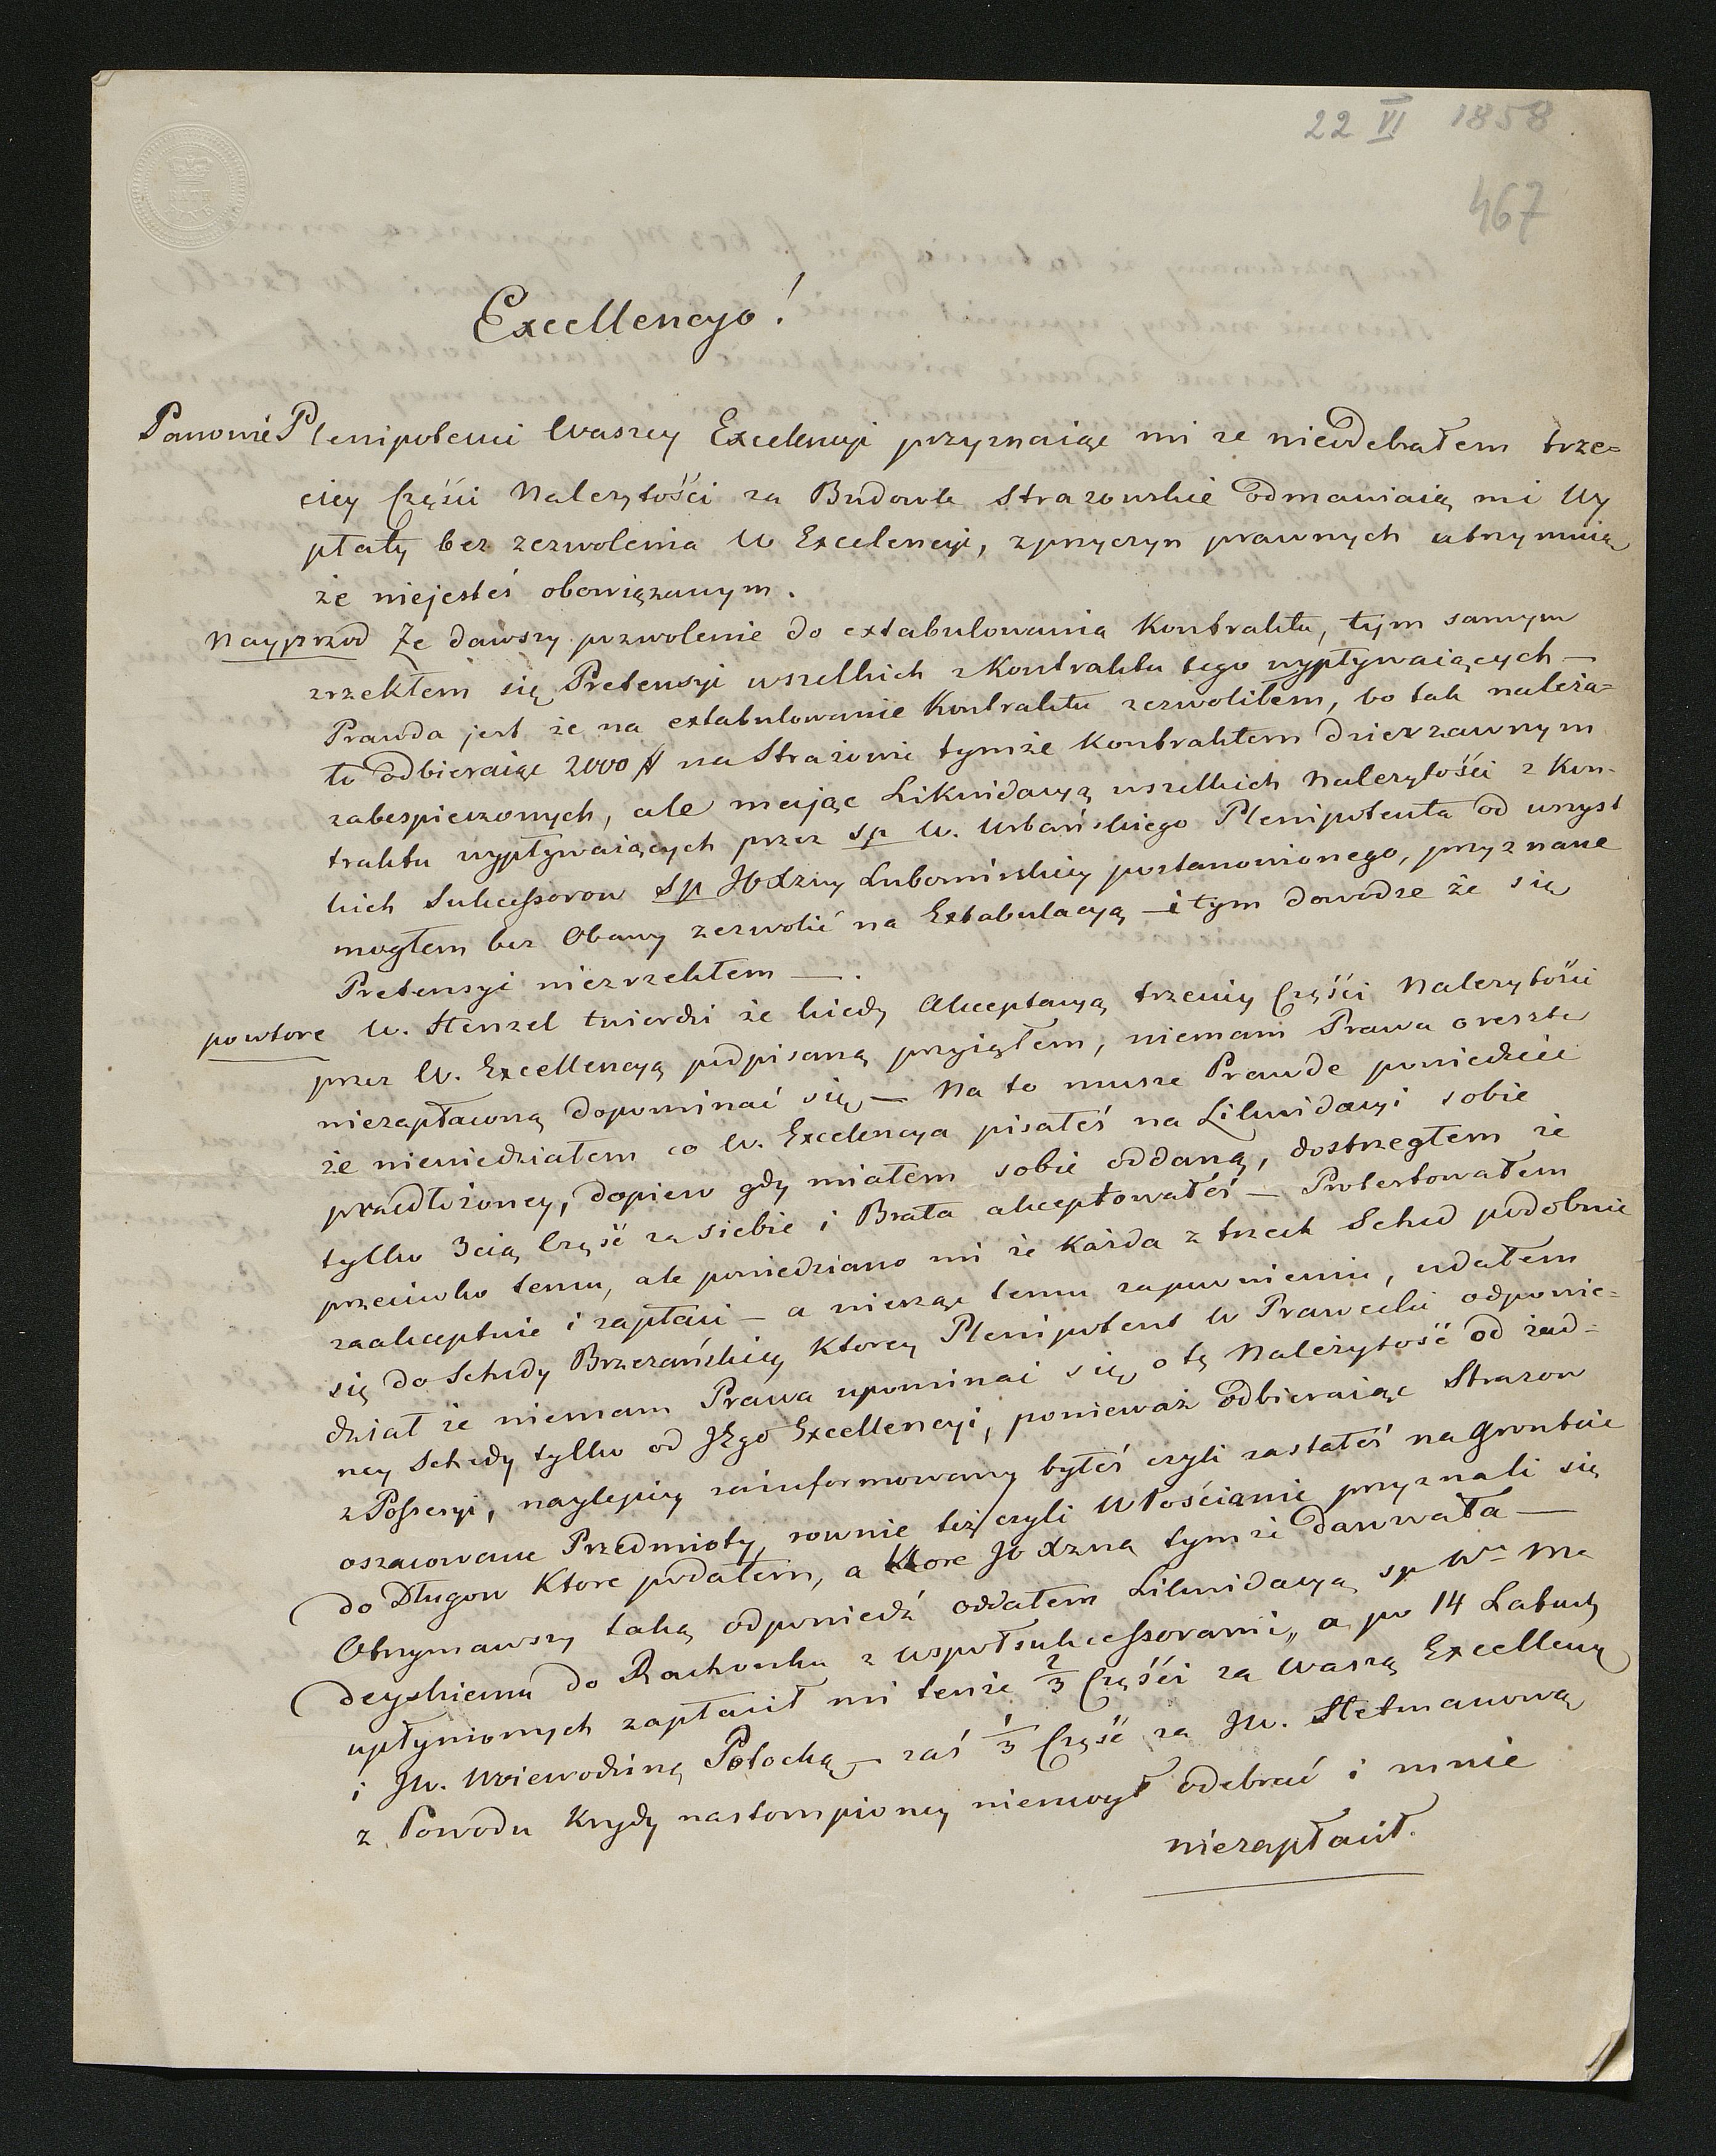 22 VI 1858
467
Excellencyo!
Panowie Plenipotenci Waszey Excelencyi przyznaiąc mi ze nieodebrałem trze=
ciey Części Nalezytości za Budowle Strazowskie odmawiaią mi Wy
płaty bez zezwolenia W Excelencyi, zprzyczyn prawnych utrzymuią
że niejesteś obowiązanym.
Nayprzod Że dawszy pozwolenie do extabulowania Kontraktu, tym samym
zrzekłem się Pretensyi wszelkich z Kontraktu tego wypływaiących —
Prawda jest że na extabulowanie Kontraktu zezwoliłem, bo tak należa=
ło odbieraiąc 2000 # na Strażowie tymże Kontraktem dzierzawnym
zabespieczonych, ale mając Likwidacyą wszelkich Nalezytości z Kon-
traktu wypływaiących przez sp W. Urbańskiego Plenipotenta od wszyst
kich Sukcessorow sp JO Xzny Lubomirskiey postanowionego, przyznane
mogłem bez Obawy zezwolić na Extabulacyą — i tym dowodze że się
Pretensyi niezrzekłem —.
powtore W. Stenzel twierdzi że kiedy Akceptacyą trzeciey Części Nalezytości
przez W. Excellencyą podpisaną przyiąłem, niemam Prawa oreszte
niezapłaconą dopominać się — Na to musze Prawde powiedzieć
że niewiedziałem co W. Excelencya pisałeś na Likwidacyi sobie
przedłożoney, dopiero gdy miałem sobie oddaną, dostrzegłem że
tylko 3cią Część za siebie i Brata akceptowałeś — Protestowałem
przeciwko temu, ale powiedziano mi że Każda z trzech Sched podobnie
zaakceptuie i zapłaci — a wierząc temu zapewnieniu, udałem
się do Schedy Brzezańskiey Ktorey Plenipotent W Prawecki odpowie=
dział że niemam Prawa upominać się o tę Należytość od żad=
ney Schedy tylko od JEgo Excellencyi, ponieważ odbieraiąc Strazow
z Possesyi, naylepiey zainformowany byłeś czyli zastałeś na Gruntcie
oszacowane Przedmioty, rownie też czyli Włościanie przyznali się
do Długow Ktore podałem, a Ktore JO Xzna tymże darowała —
Otrzymawszy taką odpowiedź oddałem Likwidacyą sp Wu Ma
deyskiemu do Rachunku z wspołsukcessorami, a po 14 Latach
upłynionych zapłacił mi tenże 2/3 Części za Waszą Excellencą
i JW. Woiewodziną Potocką — zaś 1/3 Część za JW. Hetmanową
z Powodu Krydy nastompioney niemogł odebrać i mnie
niezapłacił.